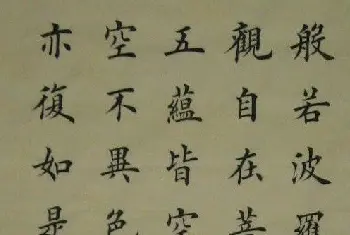 般若波羅
觀自在菩
五蘊皆空
空不異色
亦復如是